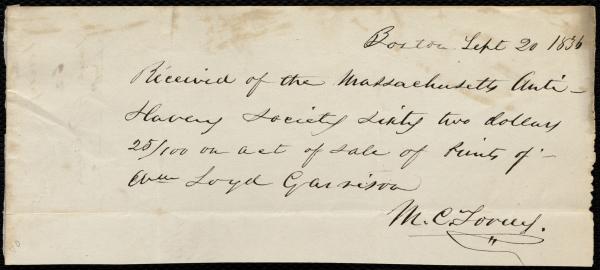 Boston Sept 20 1836
Received of the Massachusetts Anti-
Slavery Society sixty two dollars
25/100 on act of sale of Prints of
Wm Loyd Garrison
M. C. Torrey.